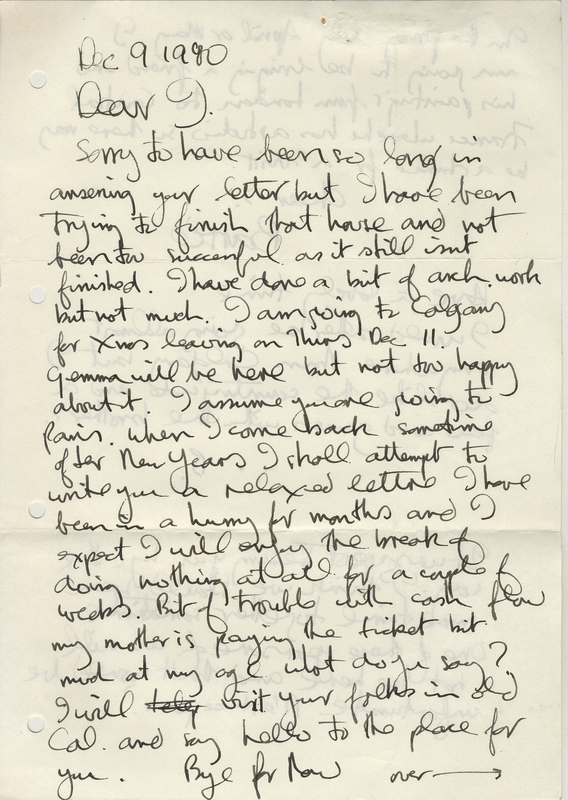 Dec 9 1980
Dear J.
Sorry to have been so long in
ansering your letter but I have been
trying to finish that house and not
been too succesful as it still isnt
finished. I have done a bit of arch. work
but not much. I am going to Calgary
for Xmas leaving on Thurs Dec 11.
Gemma will be here but not too happy
about it. I assume you are going to
Paris. When I come back sometime
after New Years I shall attempt to
write you a relaxed letter I have
been in a hurry for months and I
expect I will enjoy the break of
doing nothing at all for a couple of
weeks. Bit of trouble with cash flow
my mother is paying the ticket bit
at my age what do you say?
I will visit your folks in old
Cal. and say hello to the place for
you. Bye for Now over